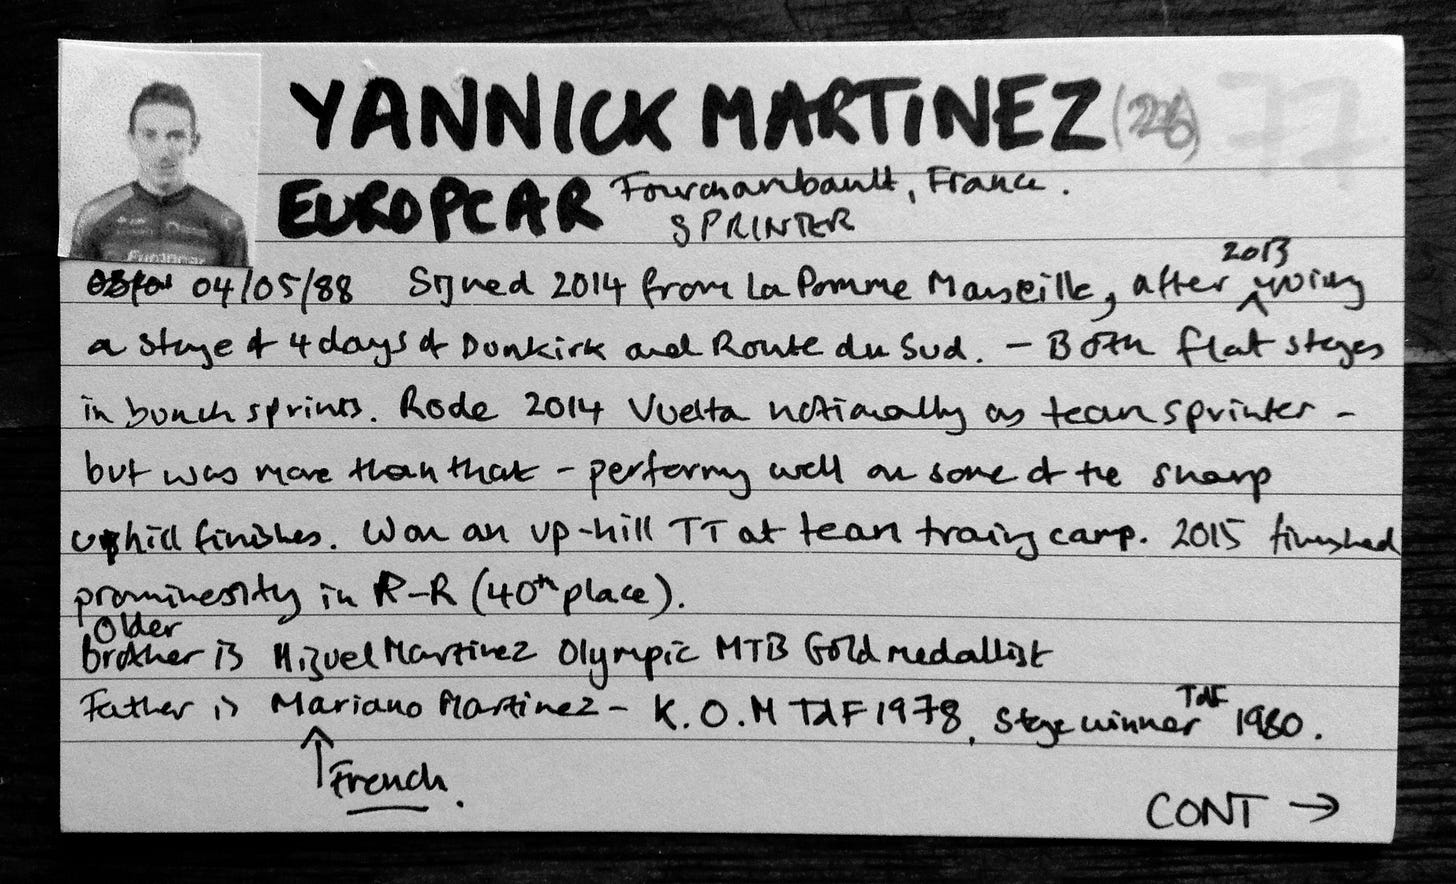 YANNICK MARTINEZ (26)
EUROPCAR Fourchambault, France.
SPRINTER
04/05/88 Signed 2014 from La Pomme Marseille, after 2013 wining
a stage of 4 days of Dunkirk and Route du Sud. - Both flat stages
in bunch sprints. Rode 2014 Vuelta notionally as team sprinter -
but was more than that - performing well on some of the sharp
uphill finishes. Won an up-hill TT at team training camp. 2015 finished
prominently in R-R (40th place).
Older
brother is Miguel Martinez Olympic MTB Gold medallist
Father is Mariano Martinez - K.O.M TdF 1978, Stage winner TdF 1980.
↑ French.
CONT →